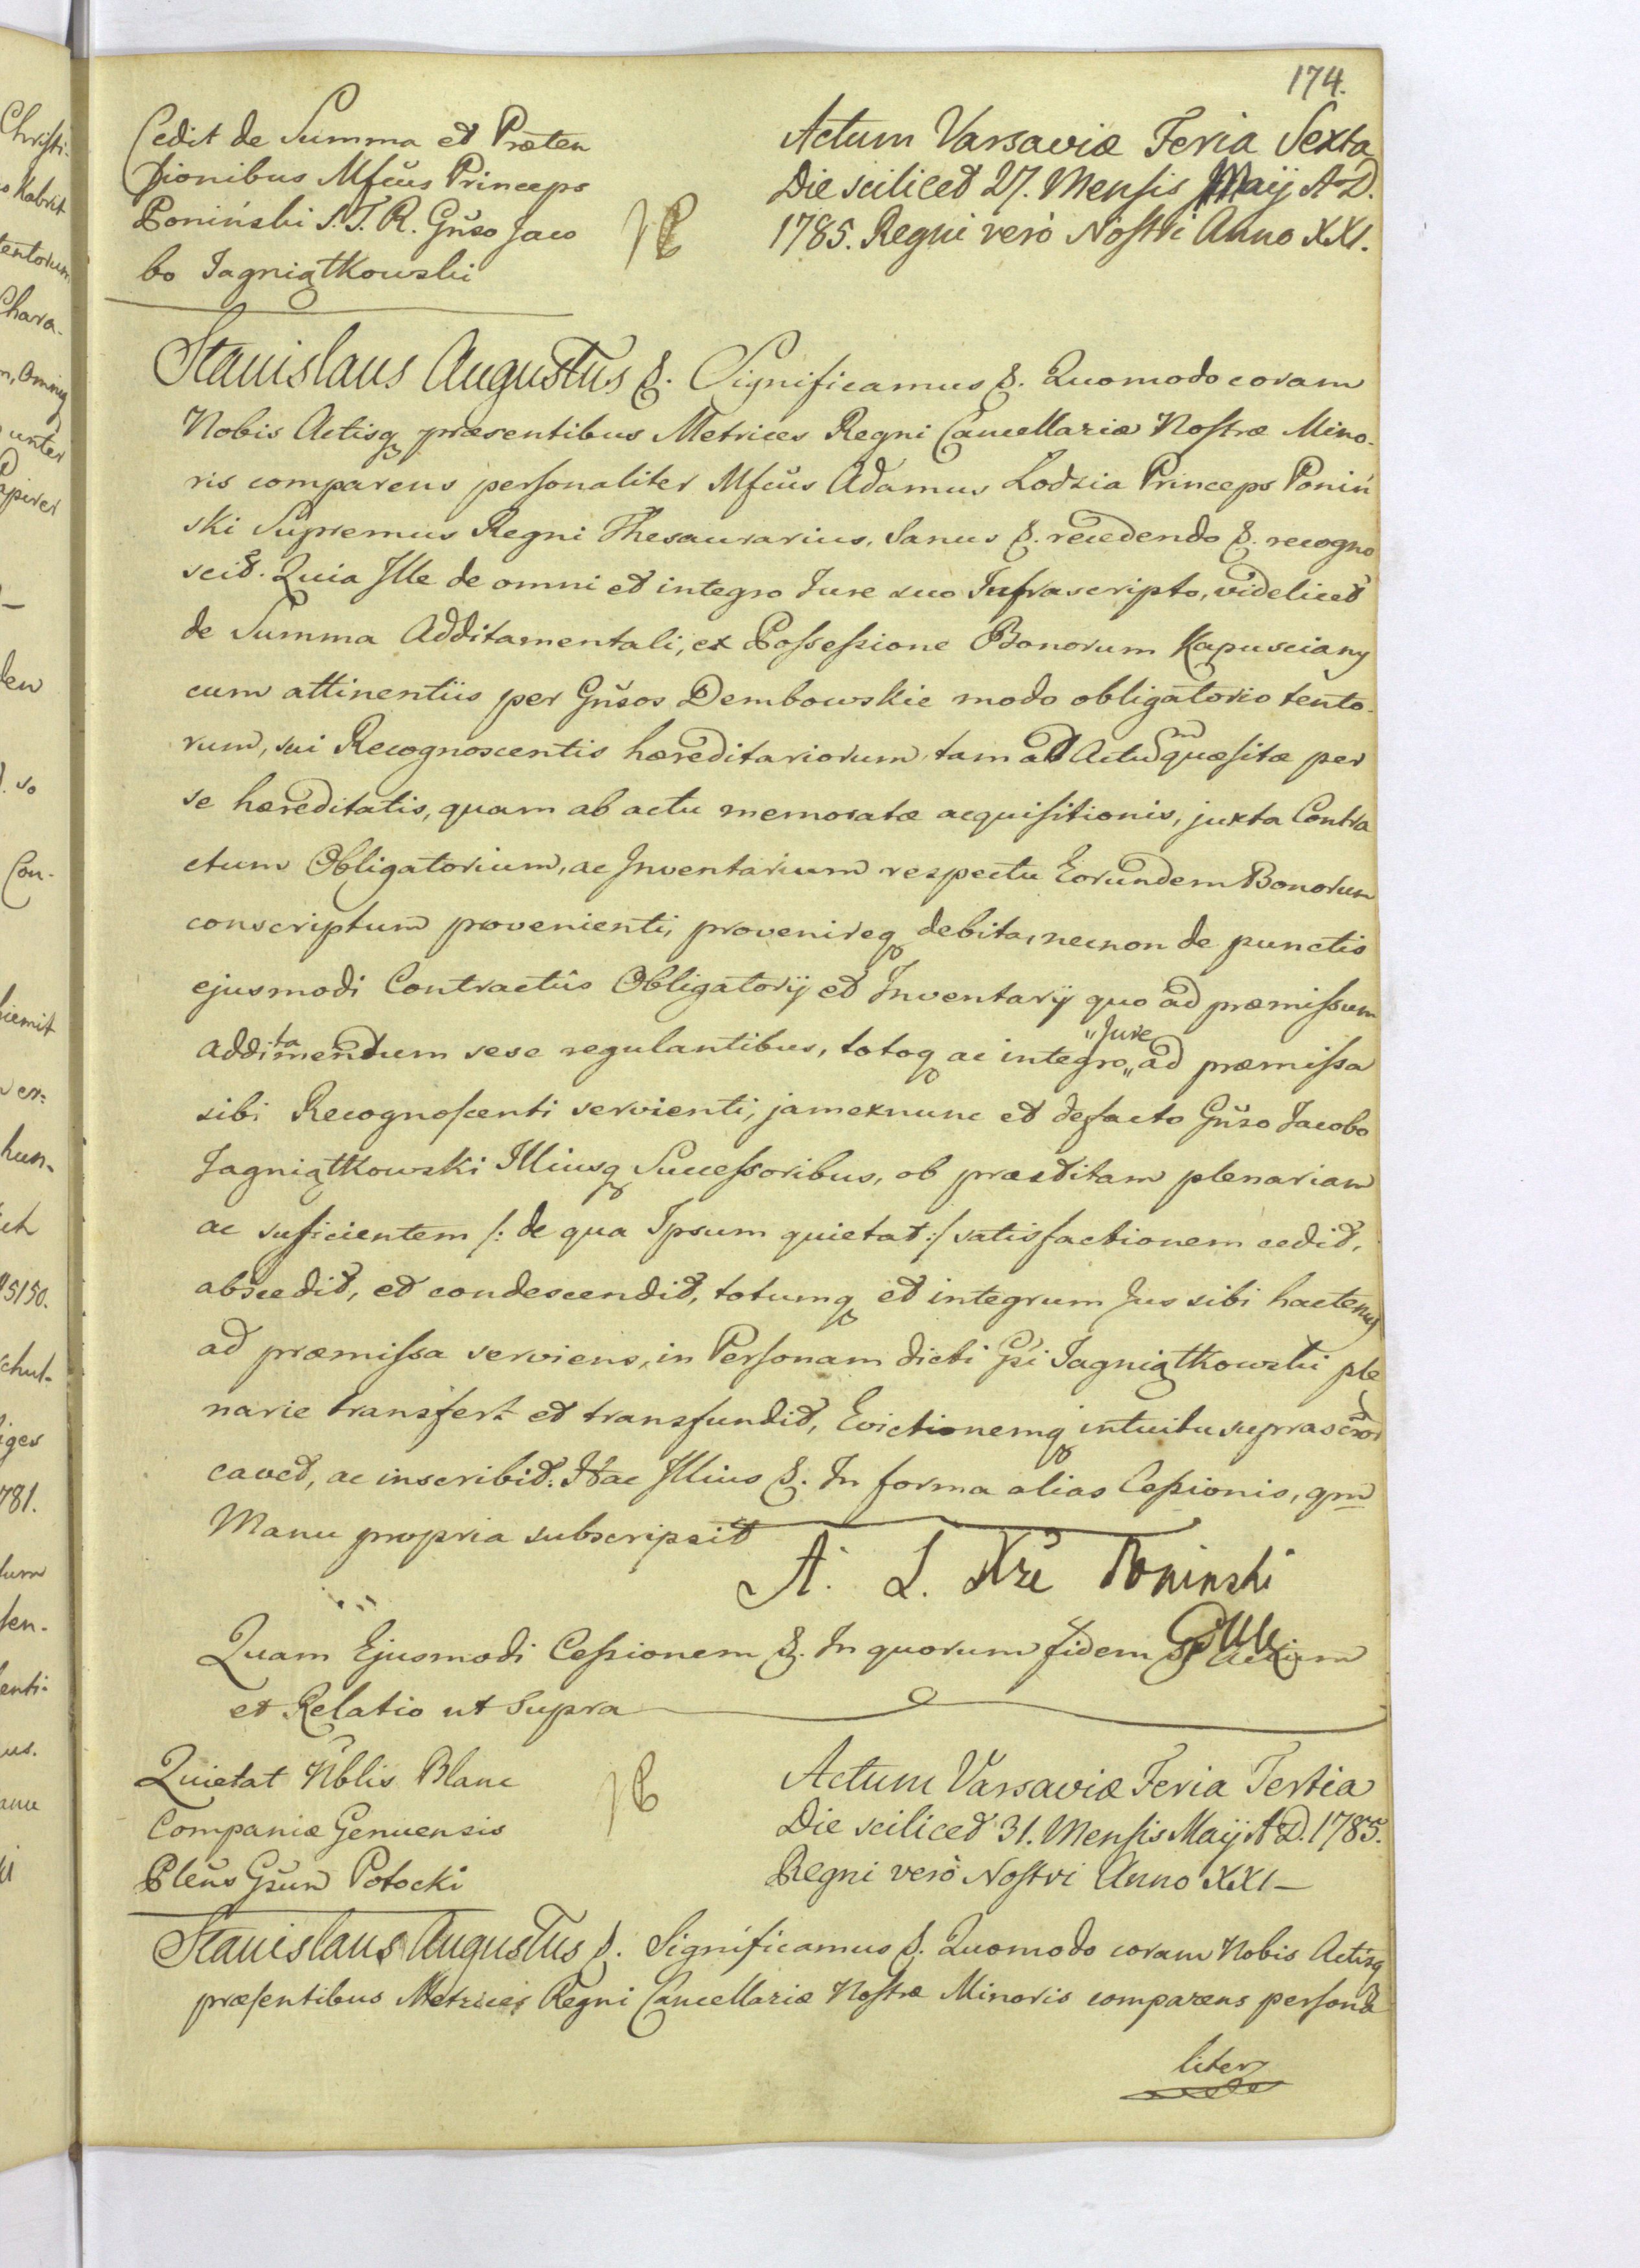 174.
Cedit de Summa et Præten
sionibus Mfcus Princeps
Poniński S. T. R. Gnso Jaco
bo Jagniątkowski
Actum Varsaviæ Feria Sexta
Die scilicet 27. Mensis Maij A. D.
1785. Regni verò Nostri Anno XXI.
Stanislaus Augustus &. Significamus &. Quomodo coram
Nobis Actisq præsentibus Metrices Regni Cancellariæ Nostræ Mino-
ris comparens personaliter Mfcus Adamus Lodzia Princeps Poniń
ski Supremus Regni Thesaurarius, Sanus &. recedendo &. recogno
scit. Quia Ille de omni et integro Jure suo Infrascripto, videlicet
de Summa Additamentali, ex Possessione Bonorum Kapusciany
cum attinentiis per Gnsos Dembowskie modo obligatorio tento-
rum, sui Recognoscentis hæreditariorum, tam ad Actum quæsitæ per
se hæreditatis, quam ab actu memoratæ acquisitionis, juxta Contra
ctum Obligatorium, ac Inventarium respectu Eorundem Bonorum
conscriptum provenienti, provenireq debita, necnon de punctis
ejusmodi Contractûs Obligatorij et Inventarij quo ad præmissum
additamentum sese regulantibus, totoq ac integro „Jure„ ad præmissa
sibi Recognoscenti servienti, jamexnunc et defacto Gnso Jacobo
Jagniątkowski Illiusq Successoribus, ob præstitam plenariam
ac suficientem /: de qua Ipsum quietat :/ satisfactionem cedit,
abscedit, et condescendit, totumq et integrum Jus sibi hactenus
ad præmissa serviens, in Personam dicti Gsi Jagniątkowski ple
narie transfert et transfundit, Evictionemq intuitu suprascror
cavet, ac inscribit. Hac Illius &. In forma alias Cessionis, qm
Manu propria subscripsit
A. L. Xże Poninski
Quam Ejusmodi Cessionem &. In quorum fidem &. Actum
et Relatio ut Supra
Quietat Nblis Blanc
Companiæ Genuensis
Plenus Gsum Potocki
Actum Varsaviæ Feria Tertia
Die scilicet 31. Mensis Maij A. D. 1785.
Regni verò Nostri Anno XXI –
Stanislaus Augustus &. Significamus &. Quomodo coram Nobis Actisq
præsentibus Metrices Regni Cancellariæ Nostræ Minoris comparens persona
liter